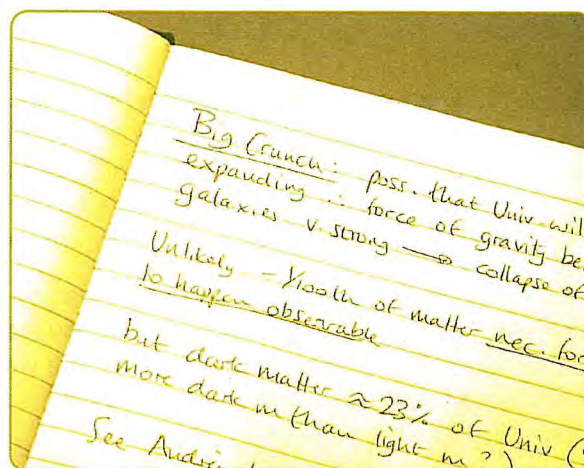 Big Crunch: poss. that Univ. will
expanding ∴ force of gravity be
galaxies v. strong → collapse of
Unlikely - 1/100th of matter nec. for
to happen observable
but dark matter ≈ 23% of Univ (
more dark m than light m ?)
See Andre